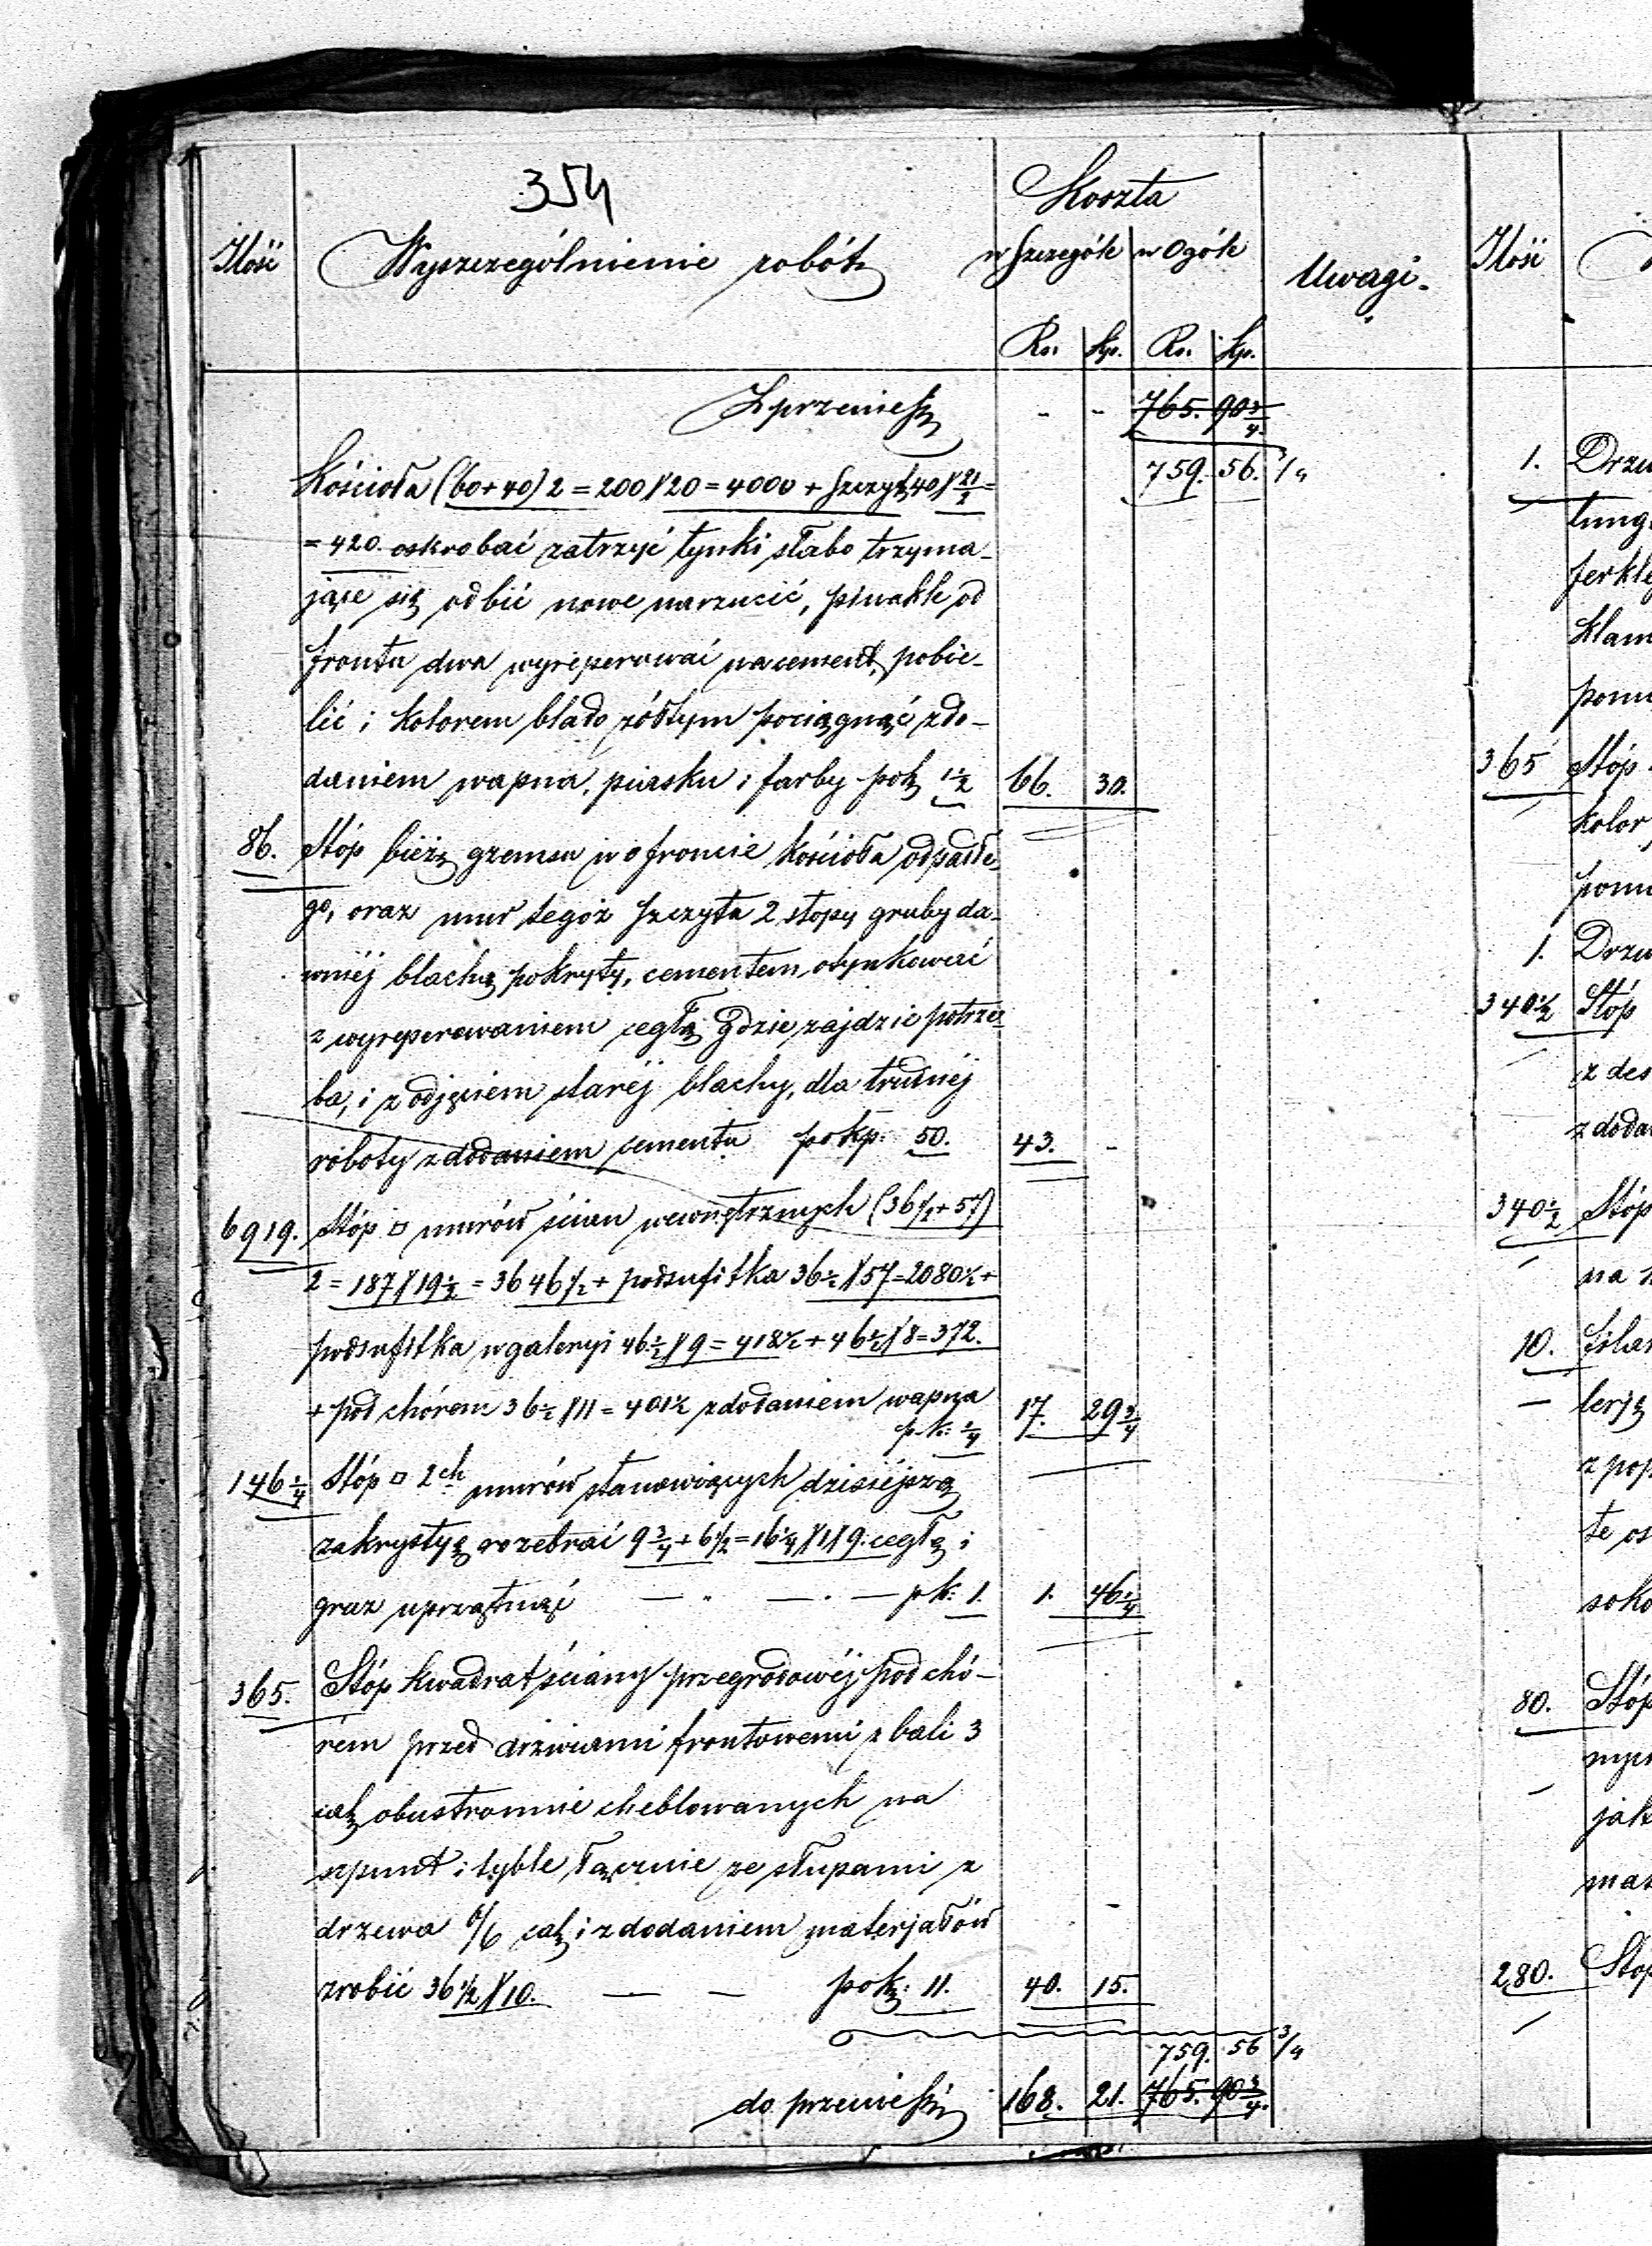 354
Ilość
Wyszczególnienie robót
Koszta
w Szczególe
w Ogóle
Uwagi.
Rs. Kp. Rs. Kp.
Z przenieś:
- - 765. 90 3/4.
759. 56. 3/4
Kościoła (60+40) 2 = 200 X 20 = 4000 + szczyt 40 X 21/2 =
= 420. oskrobać zatrzyć tynki słabo trzyma-
jące się odbić nowe narzucić, pinakle od
frontu dwa wyreperować na cement, pobie-
lić i kolorem blado żółtym pociągnąć z do-
daniem wapna, piasku i farby po k. 1 1/2 66. 30.
86. Stóp bież. gzemsu w o froncie kościoła odpadłe-
go, oraz mur tegoż szczytu 2 stopy gruby da-
wniéj blachą pokryty, cementem otynkować
z wyreperowaniem cegłą gdzie zajdzie potrze-
ba, i z odjęciem staréj blachy, dla trudnéj
roboty z dodaniem cementu po kp. 50. 43. -
6919. Stóp □ murów ścian wewnętrznych (36 1/2 + 57)
2 = 187 X 19 1/2 = 3646 1/2 + podsufitka 36 1/2 X 57 = 2080 1/2 +
podsufitka w galeryi 46 1/2 X 9 = 418 1/2 + 46 1/2 X 8 = 372.
+ pod chórem 36 1/2 X 11 = 401 1/2 z dodaniem wapna
p. k: 1/4 17. 29 3/4
146 1/4 Stóp □ 2ch murów stanowiących dzisiéjszą
zakrystyę rozebrać 9 3/4 + 6 1/2 = 16 1/4 X 1 X 9. cegłę i
gruz uprzątnąć — . — . — p k: 1. 1. 46 1/4
365. Stóp kwadrat ściany przegrodowéj pod chó-
rem przed drzwiami frontowemi z bali 3
cal. obustronnie cheblowanych na
szpunt i tyble łącznie ze słupami z
drzewa 6/6 cal. i z dodaniem materjałów
zrobić 36 1/2 X 10. — — po k. 11. 40. 15.
759. 56 3/4
do przenieś: 168. 21. 765. 90 3/4.
Ilość
1. Drzw
365 Stóp
kolor
1. Drzw
340 1/2 Stóp
z des
z doda
340 1/2 Stóp
na
10. filar
lerją
z pop
te os
soko
80. Stóp
jak
mat
280. Stóp